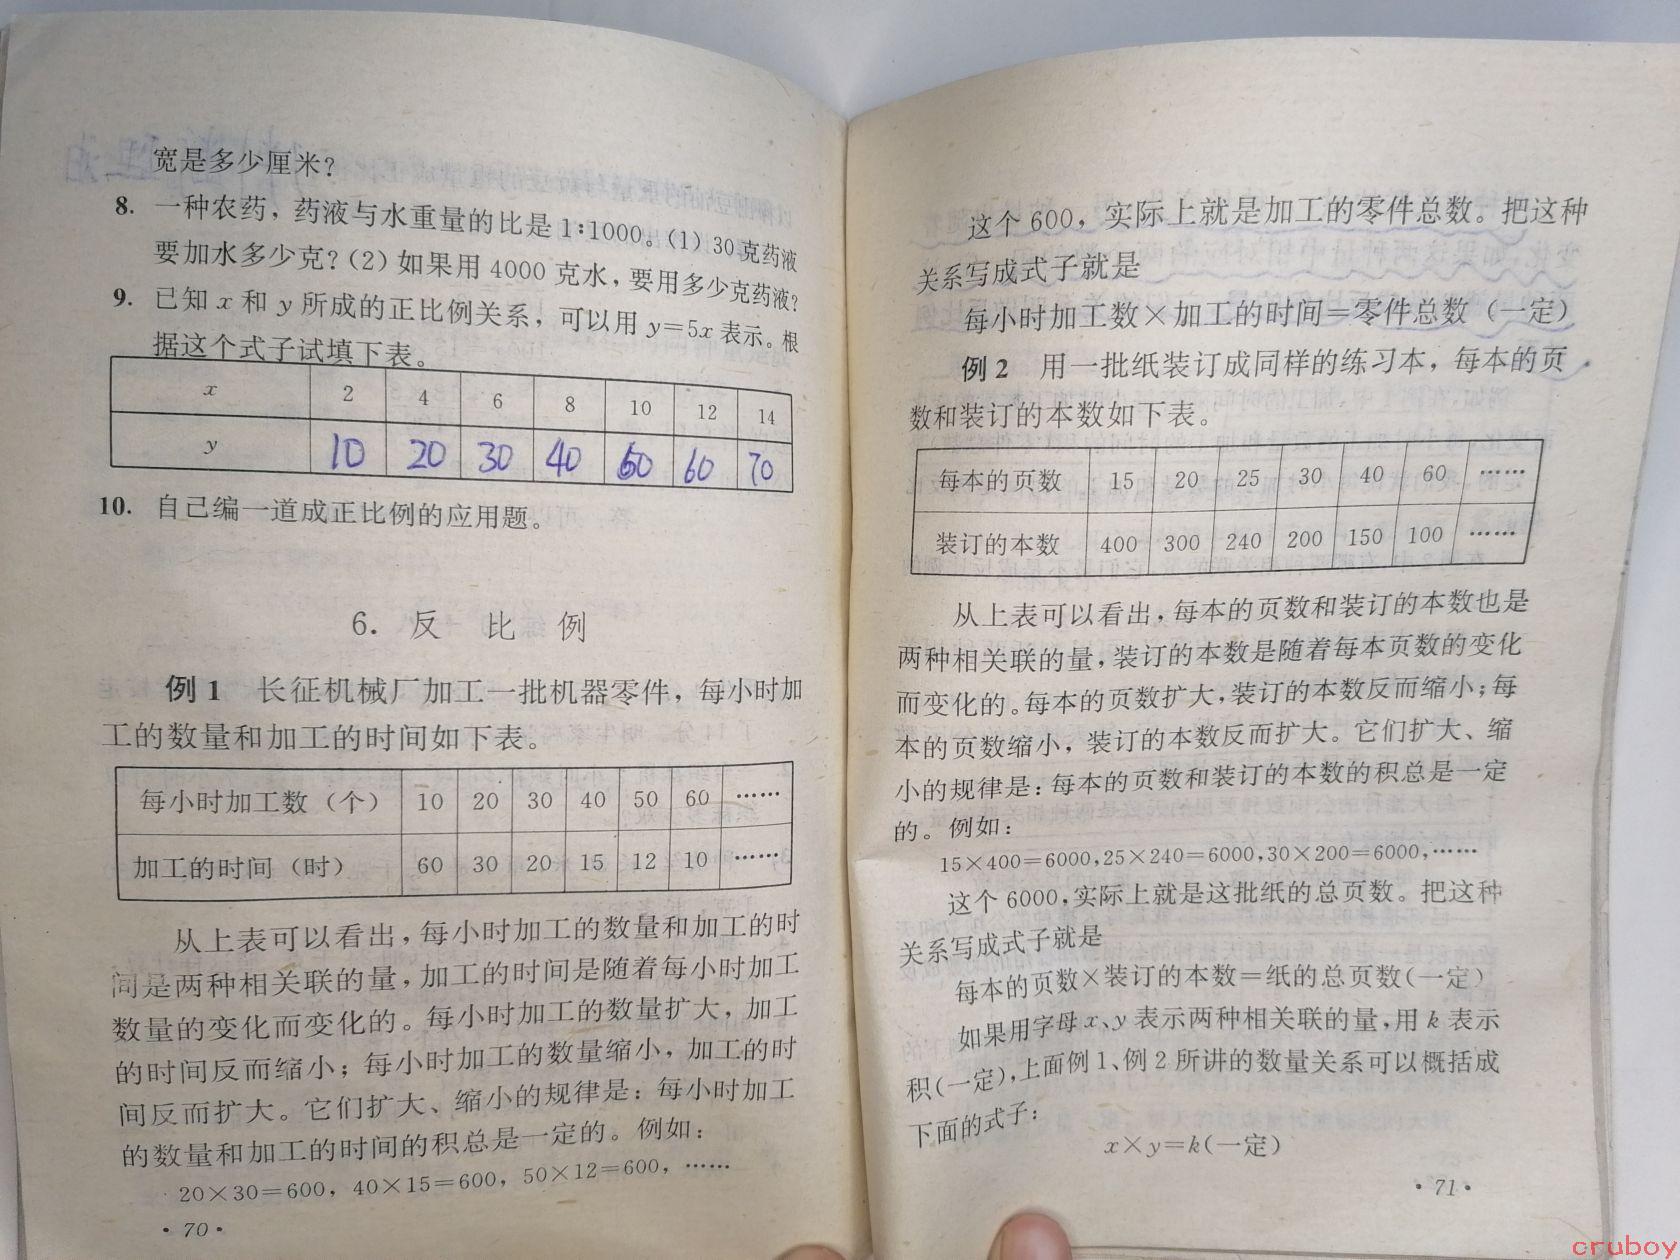 宽是多少厘米?
8. 一种农药，药液与水重量的比是1∶1000。(1) 30克药液
要加水多少克?(2) 如果用4000克水，要用多少克药液?
9. 已知 x 和 y 所成的正比例关系，可以用 y=5x 表示。根
据这个式子试填下表。
x 2 4 6 8 10 12 14
y 10 20 30 40 50 60 70
10. 自己编一道成正比例的应用题。
6. 反 比 例
例1 长征机械厂加工一批机器零件，每小时加
工的数量和加工的时间如下表。
每小时加工数（个） 10 20 30 40 50 60 ……
加工的时间（时） 60 30 20 15 12 10 ……
从上表可以看出，每小时加工的数量和加工的时
间是两种相关联的量，加工的时间是随着每小时加工
数量的变化而变化的。每小时加工的数量扩大，加工
的时间反而缩小；每小时加工的数量缩小，加工的时
间反而扩大。它们扩大、缩小的规律是：每小时加工
的数量和加工的时间的积总是一定的。例如：
20×30=600，40×15=600，50×12=600，……
·70·
这个600，实际上就是加工的零件总数。把这种
关系写成式子就是
每小时加工数×加工的时间=零件总数（一定）
例2 用一批纸装订成同样的练习本，每本的页
数和装订的本数如下表。
每本的页数 15 20 25 30 40 60 ……
装订的本数 400 300 240 200 150 100 ……
从上表可以看出，每本的页数和装订的本数也是
两种相关联的量，装订的本数是随着每本页数的变化
而变化的。每本的页数扩大，装订的本数反而缩小；每
本的页数缩小，装订的本数反而扩大。它们扩大、缩
小的规律是：每本的页数和装订的本数的积总是一定
的。例如：
15×400=6000，25×240=6000，30×200=6000，……
这个6000，实际上就是这批纸的总页数。把这种
关系写成式子就是
每本的页数×装订的本数=纸的总页数(一定)
如果用字母 x、y 表示两种相关联的量，用 k 表示
积(一定)，上面例1、例2所讲的数量关系可以概括成
下面的式子：
x×y=k(一定)
·71·
cruboy